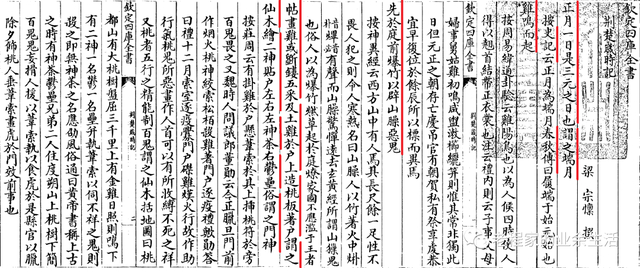 欽定四庫全書
荆楚歲時記
梁 宗懍 撰
正月一日是三元之日也謂之端月
按史記云正月為端月春秋傳曰履端于始元始也
雞鳴而起
按周易緯通卦驗云雞陽鳥也以為人候四時使人
得以翹首結帶正衣裳也注云禮内則云子事父母
欽定四庫全書
荆楚歲時記
婦事舅姑雞初鳴咸盥漱櫛縰笄則惟其常非獨此
日但元正之朝存亡慶弔官有朝賀私有祭享虔恭
宜早復位於餘辰所以標而異焉
先於庭前爆竹以辟山臊惡鬼
按神異經云西方山中有人焉其長尺餘一足性不
畏人犯之則令人寒熱名曰山臊以竹著火中烞
熚有聲而山臊驚憚遠去玄黄經所謂山臊鬼
也俗人以為爆竹燃草起於庭燎家國不應濫于王者
帖畫雞或斵鏤五采及土雞于户上造桃板著户謂之
仙木繪二神貼户左右左神荼右鬱壘俗謂之門神
按莊周云有挂雞于户懸葦索於其上插桃符於旁
百鬼畏之又魏時人問議郎董勛云今正臘旦門前
作烟火桃神絞索松柏殺雞著門户逐疫禮歟勛答
曰禮十二月索室逐疫釁門户磔雞熯火行故作助
行氣桃鬼所惡畫作人首可以有所收縛不死之祥
又桃者五行之精能制百鬼謂之仙木括地圖曰桃
都山有大桃樹盤屈三千里上有金雞日照則鳴下
有二神一名鬱一名壘并執葦索以伺不祥之鬼則
殺之即無神荼之名應劭風俗通曰黄帝書稱上古
之時有神荼鬱壘兄弟二人住度朔山上桃樹下簡
百鬼鬼妄搰人援以葦索執以食虎於是縣官以臘
除夕飾桃人垂葦索畫虎於門效前事也